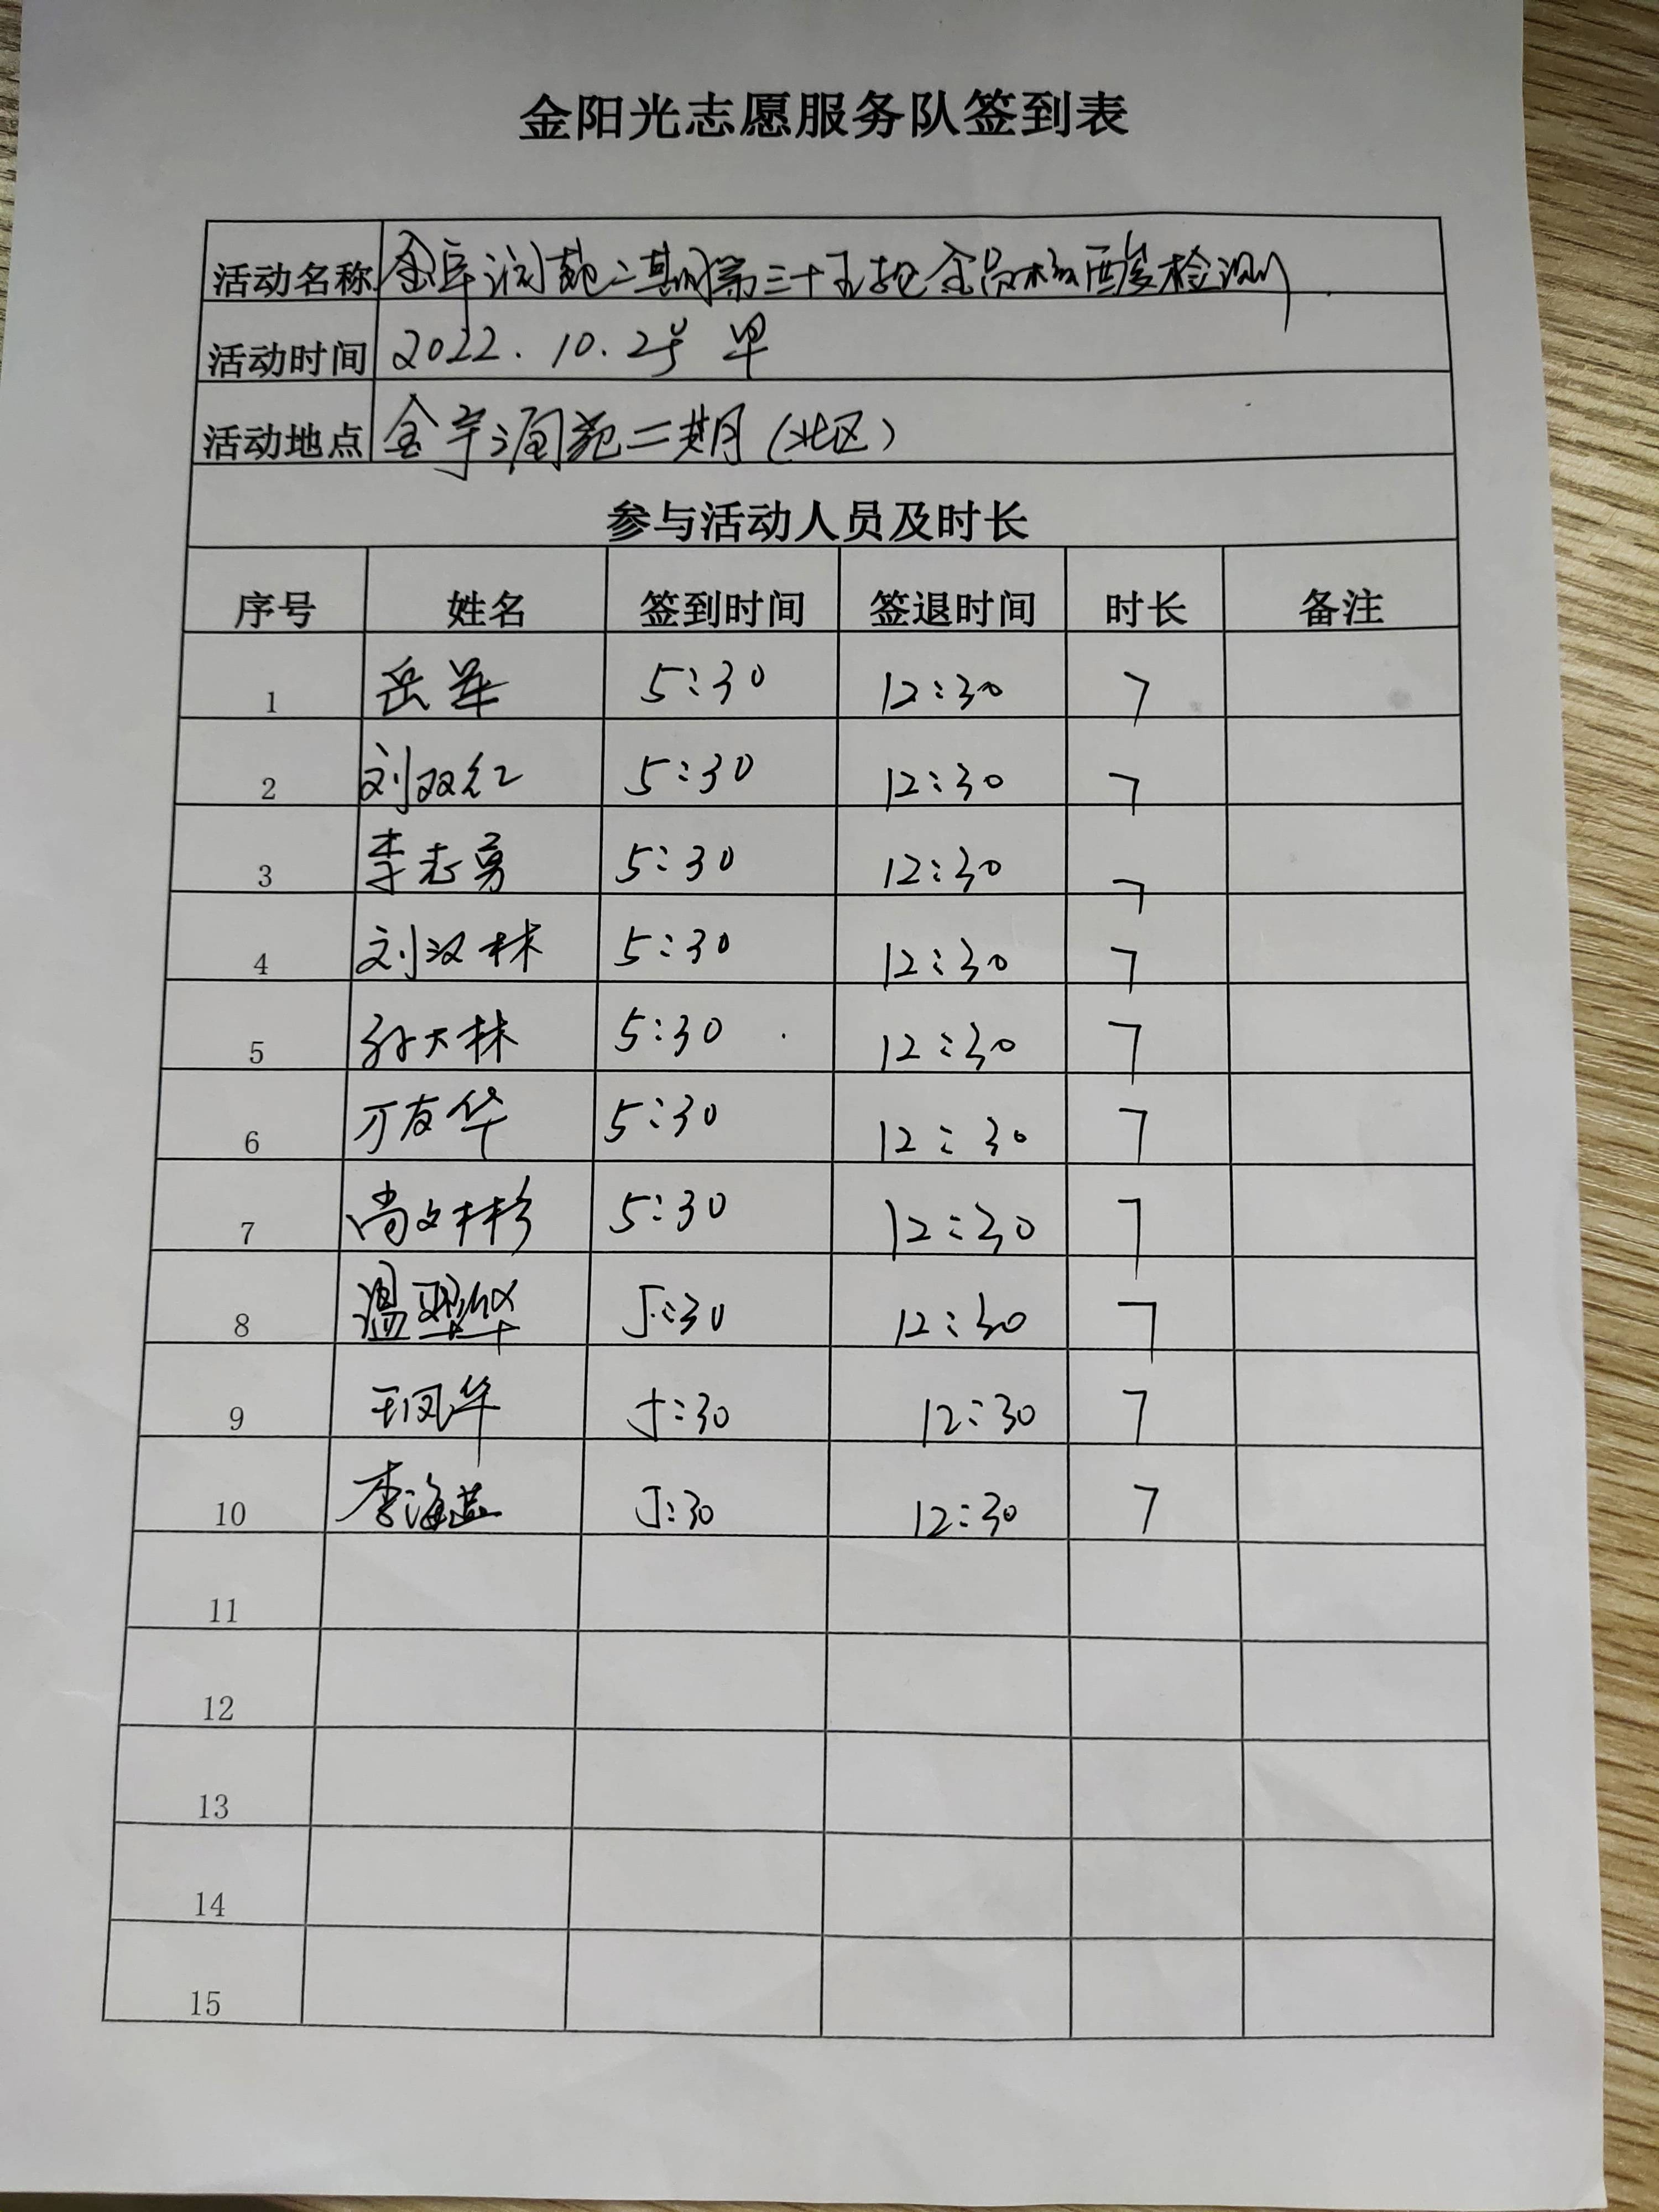 金阳光志愿服务队签到表
活动名称 金宇润苑二期第三十五轮全员核酸检测
活动时间 2022.10.25 早
活动地点 金宇润苑二期(北区)
参与活动人员及时长
序号 姓名 签到时间 签退时间 时长 备注
1 岳军 5:30 12:30 7
2 刘双红 5:30 12:30 7
3 李志勇 5:30 12:30 7
4 刘汉林 5:30 12:30 7
5 孙大林 5:30 12:30 7
6 丁友华 5:30 12:30 7
7 尚文彬 5:30 12:30 7
8 温 5:30 12:30 7
9 王凤华 5:30 12:30 7
10 李海燕 5:30 12:30 7
11
12
13
14
15